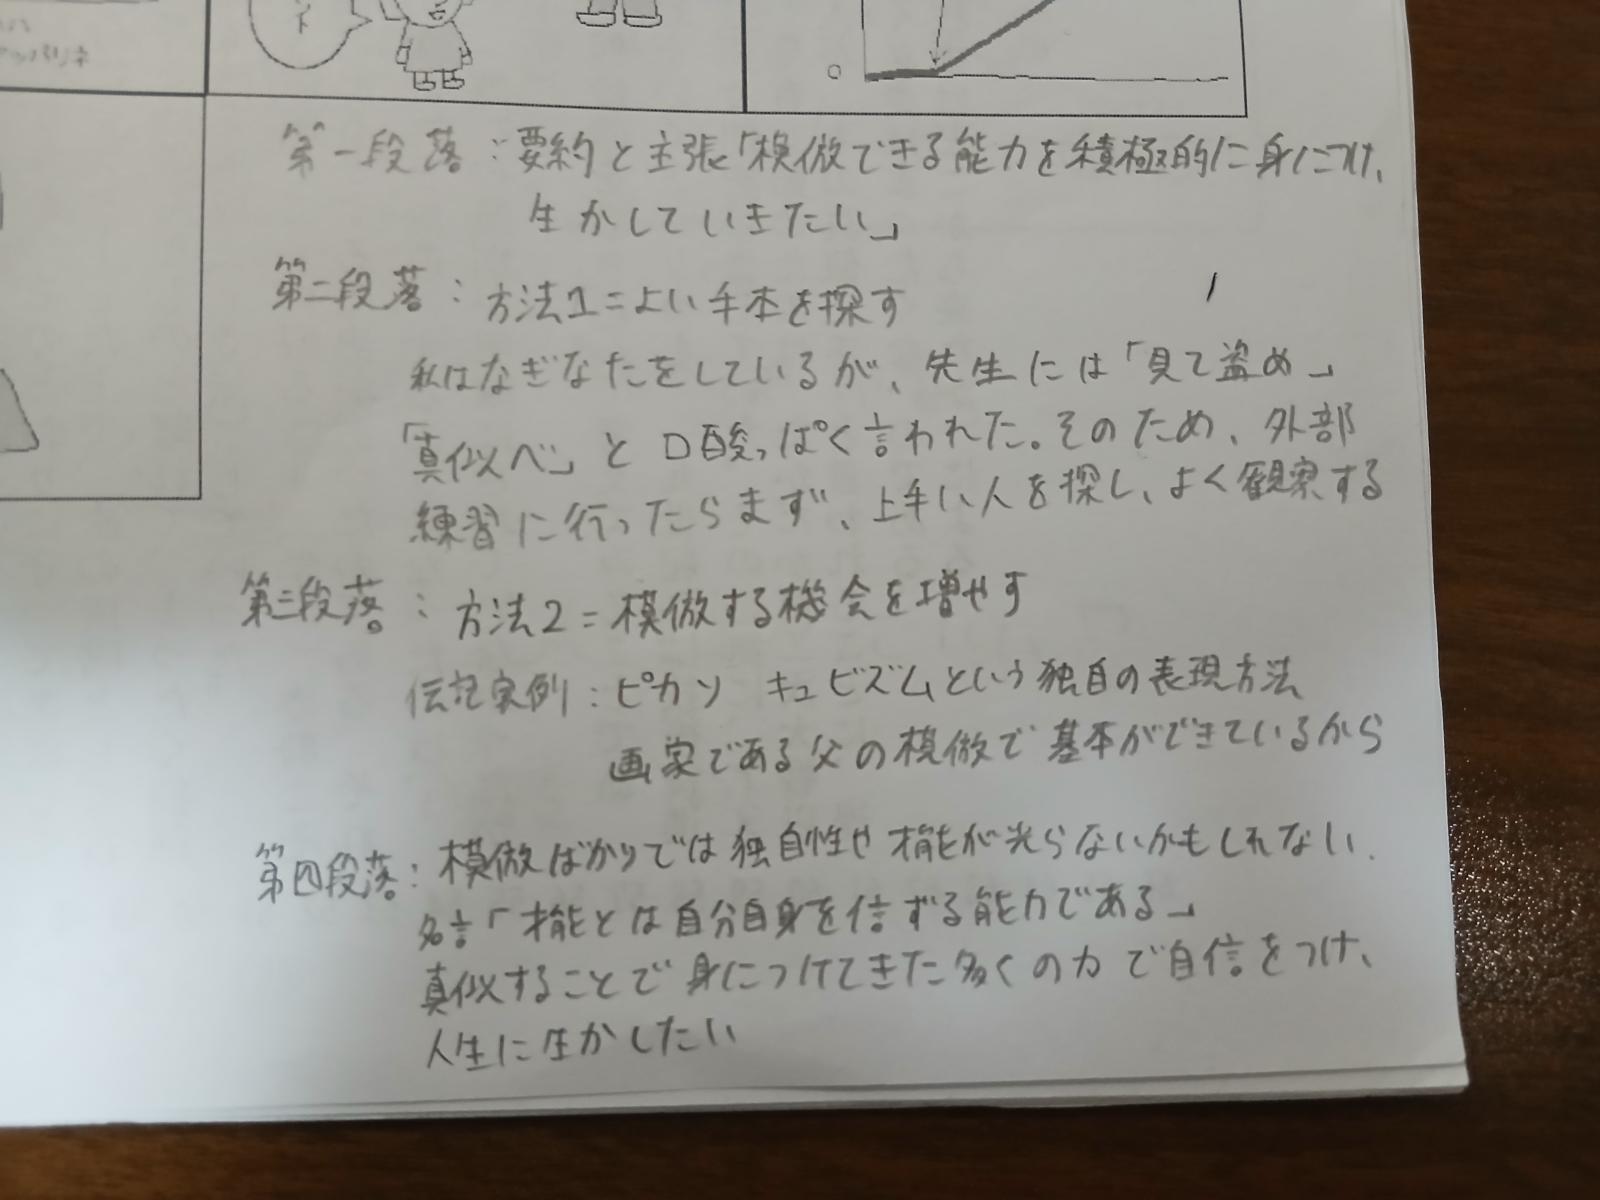 ット
0
第一段落：要約と主張「模倣できる能力を積極的に身につけ、
生かしていきたい」
第二段落：方法1＝よい手本を探す
私はなぎなたをしているが、先生には「見て盗め」
「真似べ」と口酸っぱく言われた。そのため、外部
練習に行ったらまず、上手い人を探し、よく観察する
第三段落：方法2＝模倣する機会を増やす
伝記実例：ピカソ キュビズムという独自の表現方法
画家である父の模倣で基本ができているから
第四段落：模倣ばかりでは独自性や才能が光らないかもしれない.
名言「才能とは自分自身を信ずる能力である」
真似することで身につけてきた多くの力で自信をつけ、
人生に生かしたい